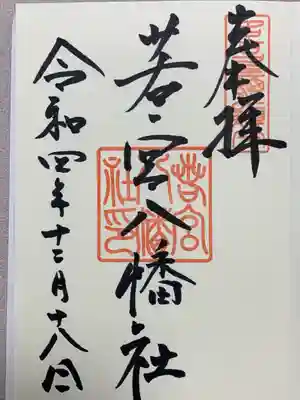 奉拝
若宮八幡社
令和四年十二月十八日
若宮八幡社印